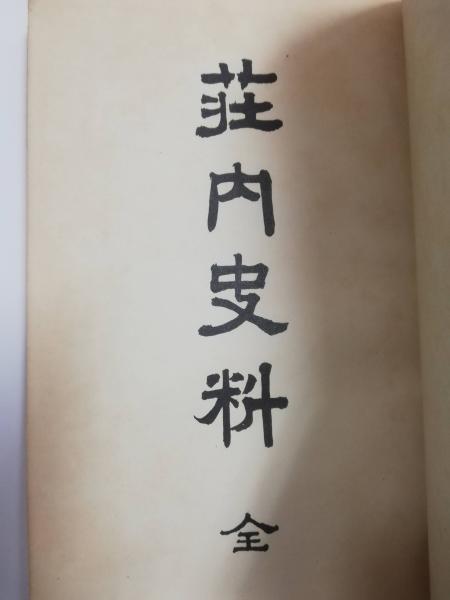 荘内史料 全